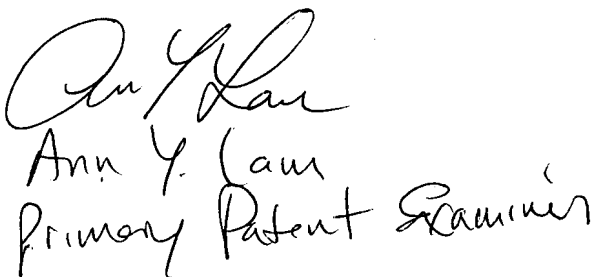 Ann Y. Lam
Ann Y. Lam
Primary Patent Examiner